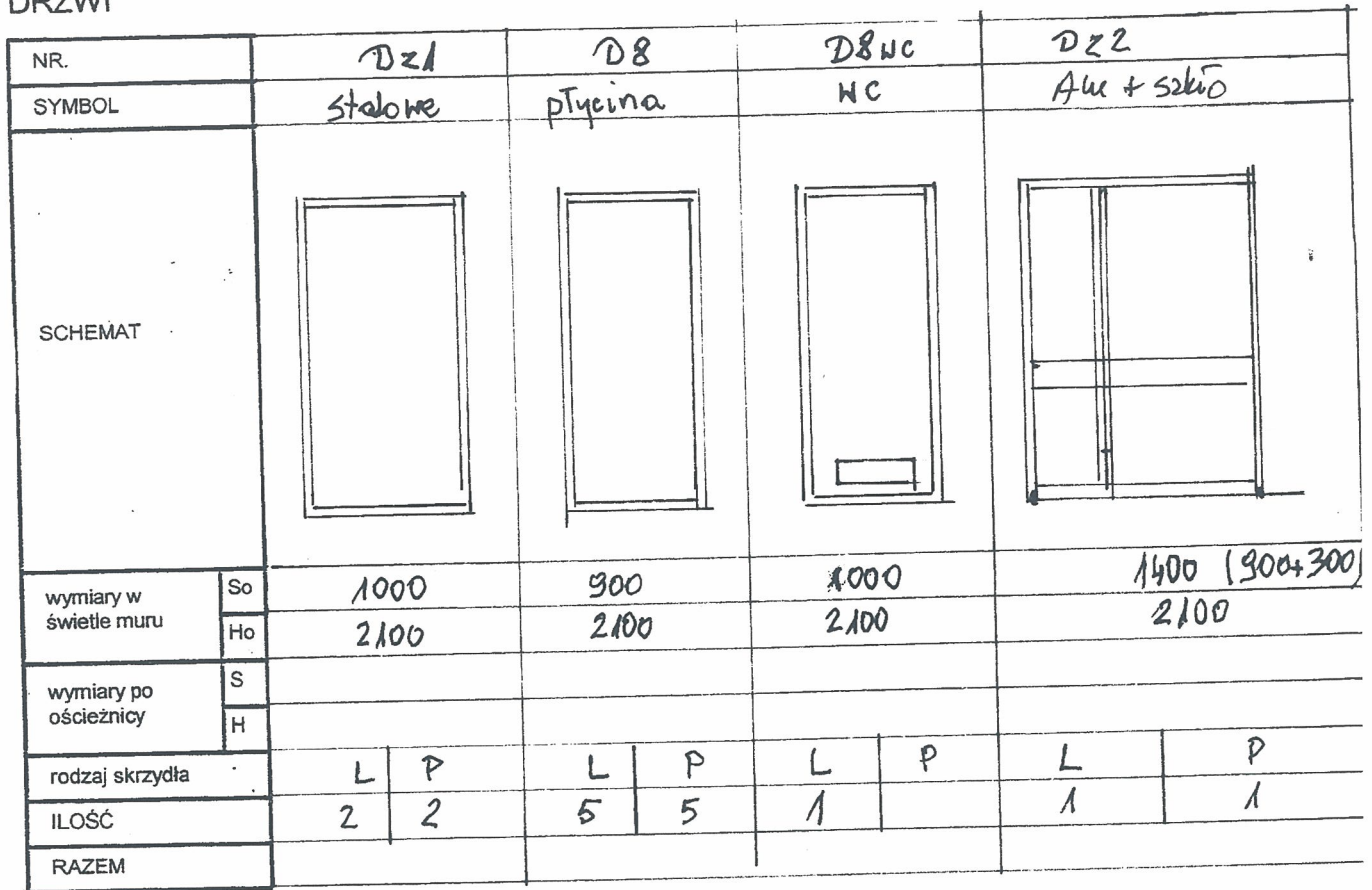 DRZWI
NR. Dz1 D8 D8WC DZ2
SYMBOL stalowe płycina WC Alu + szkło
SCHEMAT
wymiary w świetle muru So 1000 900 1000 1400 (900+300)
Ho 2100 2100 2100 2100
wymiary po ościeżnicy S
H
rodzaj skrzydła L P L P L P L P
ILOŚĆ 2 2 5 5 1 1 1
RAZEM